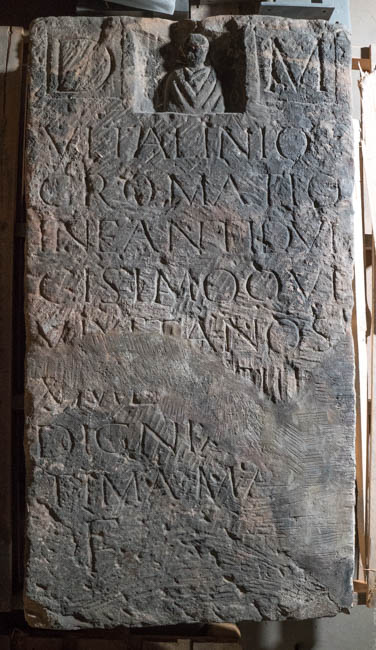 D M
VITALINIO
CROMATIO
INFANTI DVL
CISIMO QVI
VIXIT ANOS
IIII
DIGNI
TIMA MA
F